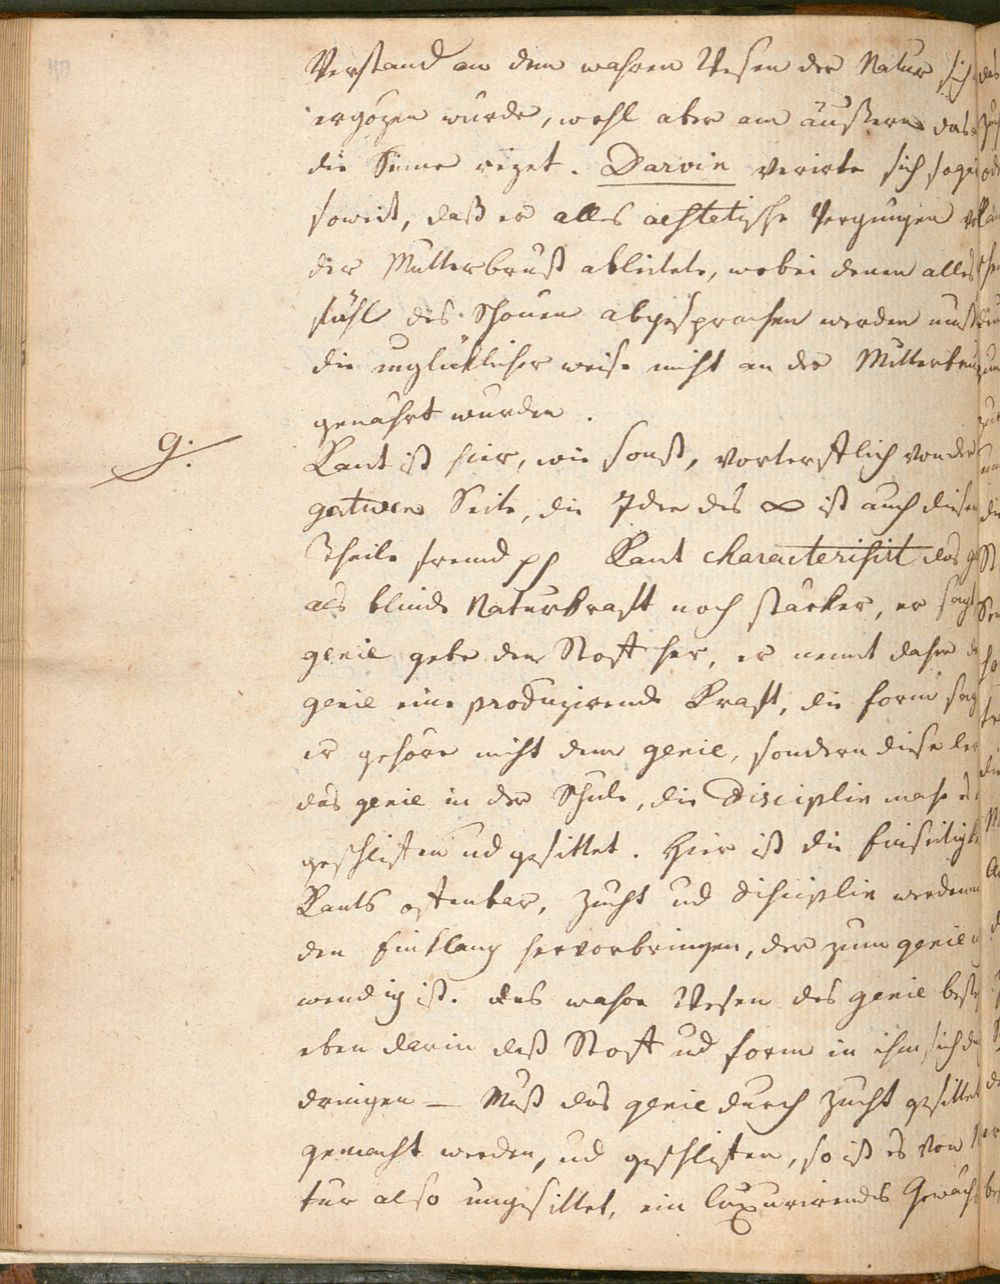 40
Verstand an dem wahren Wesen der Natur sich
ergözen wurde, wohl aber am äußern das
die Sinne reizet. Darvin verirte sich soga
soweit, daß er alles aesthetische Vergnügen vo
der Mutterbrust ableitete, wobei denen alles
fühl des Schönen abgesprochen werden muß
die unglüklicher weise nicht an der Mutterbru
genährt wurden.
9.
Kant ist hier, wie sonst, vorterflich von der
gativen Seite, die Idee des ∞ ist auch diesem
Theile fremd pp Kant characterisirt das g
als blinde Naturkraft noch stärker, er sagt
genie gebe den Stoff her, er nennt daher d
genie eine produzirende Kraft, die form sag
er gehöre nicht dem genie, sondern diese ler
das genie in der Schule, die Disciplin mache es
geschliffen ud gesittet. Hier ist die Einseitigk
Kants offenbar, Zucht ud Disciplin werden n
den Einklang hervorbringen, der zum genie n
wendig ist. das wahre Wesen des genie beste
eben darin daß Stoff ud form in ihm sich du
dringen — Muß das genie durch Zucht gesittet
gemacht werden, ud geschliffen, so ist es von Na
tur also ungesittet, ein luxurirendes Gewächs